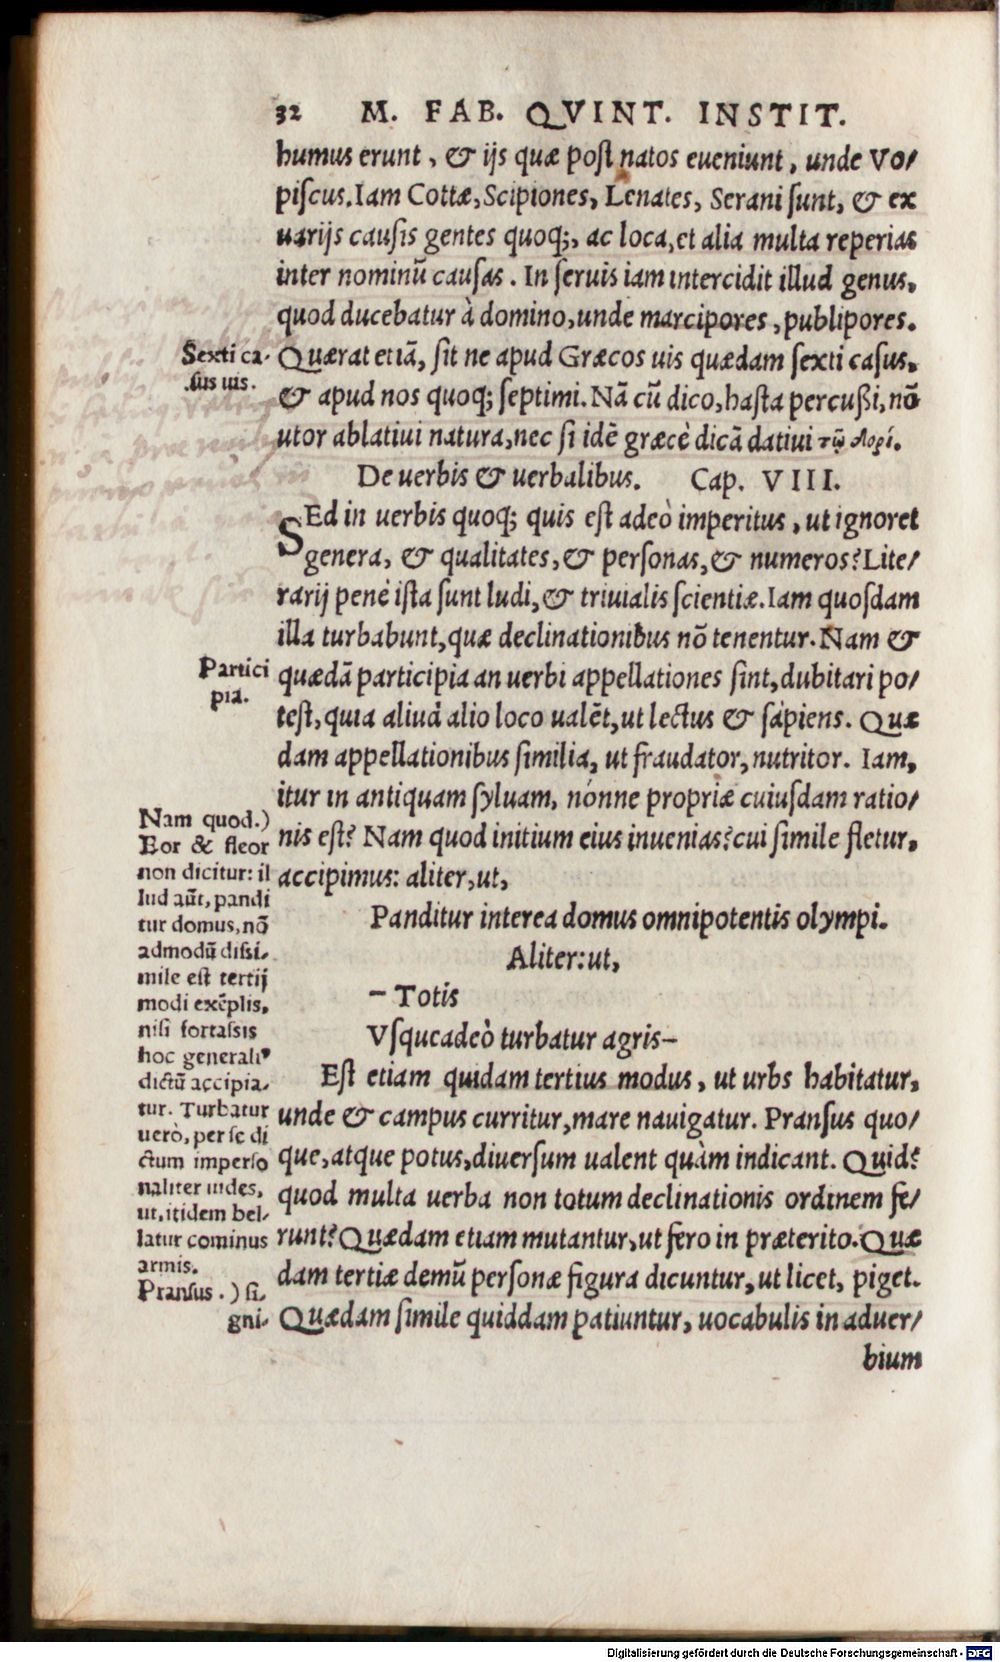 32 M. FAB. QVINT. INSTIT.
humus erunt, & ijs quæ post natos eueniunt, unde Vo/
piscus. Iam Cottæ, Scipiones, Lenates, Serani sunt, & ex
uarijs causis gentes quoq;, ac loca, et alia multa reperias
inter nominũ causas. In seruis iam intercidit illud genus,
quod ducebatur à domino, unde marcipores, publipores.
Quærat etiã, sit ne apud Græcos uis quædam sexti casus,
& apud nos quoq; septimi. Nã cũ dico, hasta percußi, nõ
utor ablatiui natura, nec si idẽ græcè dicã datiui τῷ δορί.
Sexti ca-
sus uis.
De uerbis & uerbalibus. Cap. VIII.
SEd in uerbis quoq; quis est adeò imperitus, ut ignoret
genera, & qualitates, & personas, & numeros? Lite/
rarij penè ista sunt ludi, & triuialis scientiæ. Iam quosdam
illa turbabunt, quæ declinationibus nõ tenentur. Nam &
quædã participia an uerbi appellationes sint, dubitari po/
test, quia aliud alio loco ualẽt, ut lectus & sapiens. Quæ
dam appellationibus similia, ut fraudator, nutritor. Iam,
itur in antiquam syluam, nónne propriæ cuiusdam ratio/
nis est? Nam quod initium eius inuenias? cui simile fletur,
accipimus: aliter, ut,
Panditur interea domus omnipotentis olympi.
Aliter: ut,
– Totis
Vsqueadeò turbatur agris–
Est etiam quidam tertius modus, ut urbs habitatur,
unde & campus curritur, mare nauigatur. Pransus quo/
que, atque potus, diuersum ualent quàm indicant. Quid?
quod multa uerba non totum declinationis ordinem fe/
runt? Quædam etiam mutantur, ut fero in præterito. Quæ
dam tertiæ demũ personæ figura dicuntur, ut licet, piget.
Quædam simile quiddam patiuntur, uocabulis in aduer/
bium
Partici
pia.
Nam quod.)
Eor & fleor
non dicitur: il
lud aũt, pandi
tur domus, nõ
admodũ dissi-
mile est tertij
modi exẽplis,
nisi fortassis
hoc generaliꝰ
dictũ accipia-
tur. Turbatur
uerò, per se di
ctum imperso
naliter uides,
ut, itidem bel-
latur cominus
armis.
Pransus.) si-
gni-
Digitalisierung gefördert durch die Deutsche Forschungsgemeinschaft - DFG